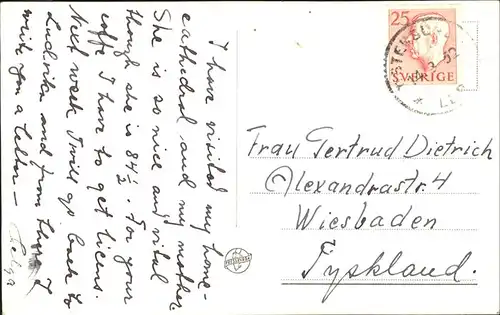 I have visited my home-
cathedral and my mother.
She is so nice and vital
though she is 84½. For your
coffe I have to get licens.
Next week I will go back to
Ludvika and from there I
write you a letter —
Helga
25
SVERIGE
Frau Gertrud Dietrich
Alexandrastr. 4
Wiesbaden
Tyskland.